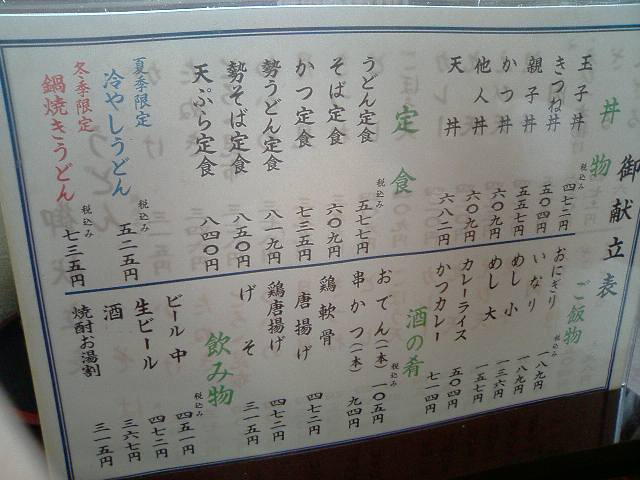 御献立表
丼物
税込み
玉子丼 四七二円
きつね丼 五〇四円
親子丼 五五七円
かつ丼 六〇九円
他人丼 六〇九円
天丼 六八二円
定食
税込み
うどん定食 五七七円
そば定食 六〇九円
かつ定食 七三五円
勢うどん定食 八一九円
勢そば定食 八五〇円
天ぷら定食 八四〇円
夏季限定
税込み
冷やしうどん 五二五円
冬季限定
税込み
鍋焼きうどん 七三五円
ご飯物
税込み
おにぎり 一八九円
いなり 一八九円
めし 小 一三六円
めし 大 一五七円
カレーライス 五〇四円
かつカレー 七一四円
酒の肴
税込み
おでん(一本) 一〇五円
串かつ(一本) 九四円
鶏軟骨
唐揚げ 四七二円
鶏唐揚げ 四七二円
げそ 三一五円
飲み物
税込み
ビール 中 四五一円
生ビール 四七二円
酒 三六七円
焼酎お湯割 三一五円